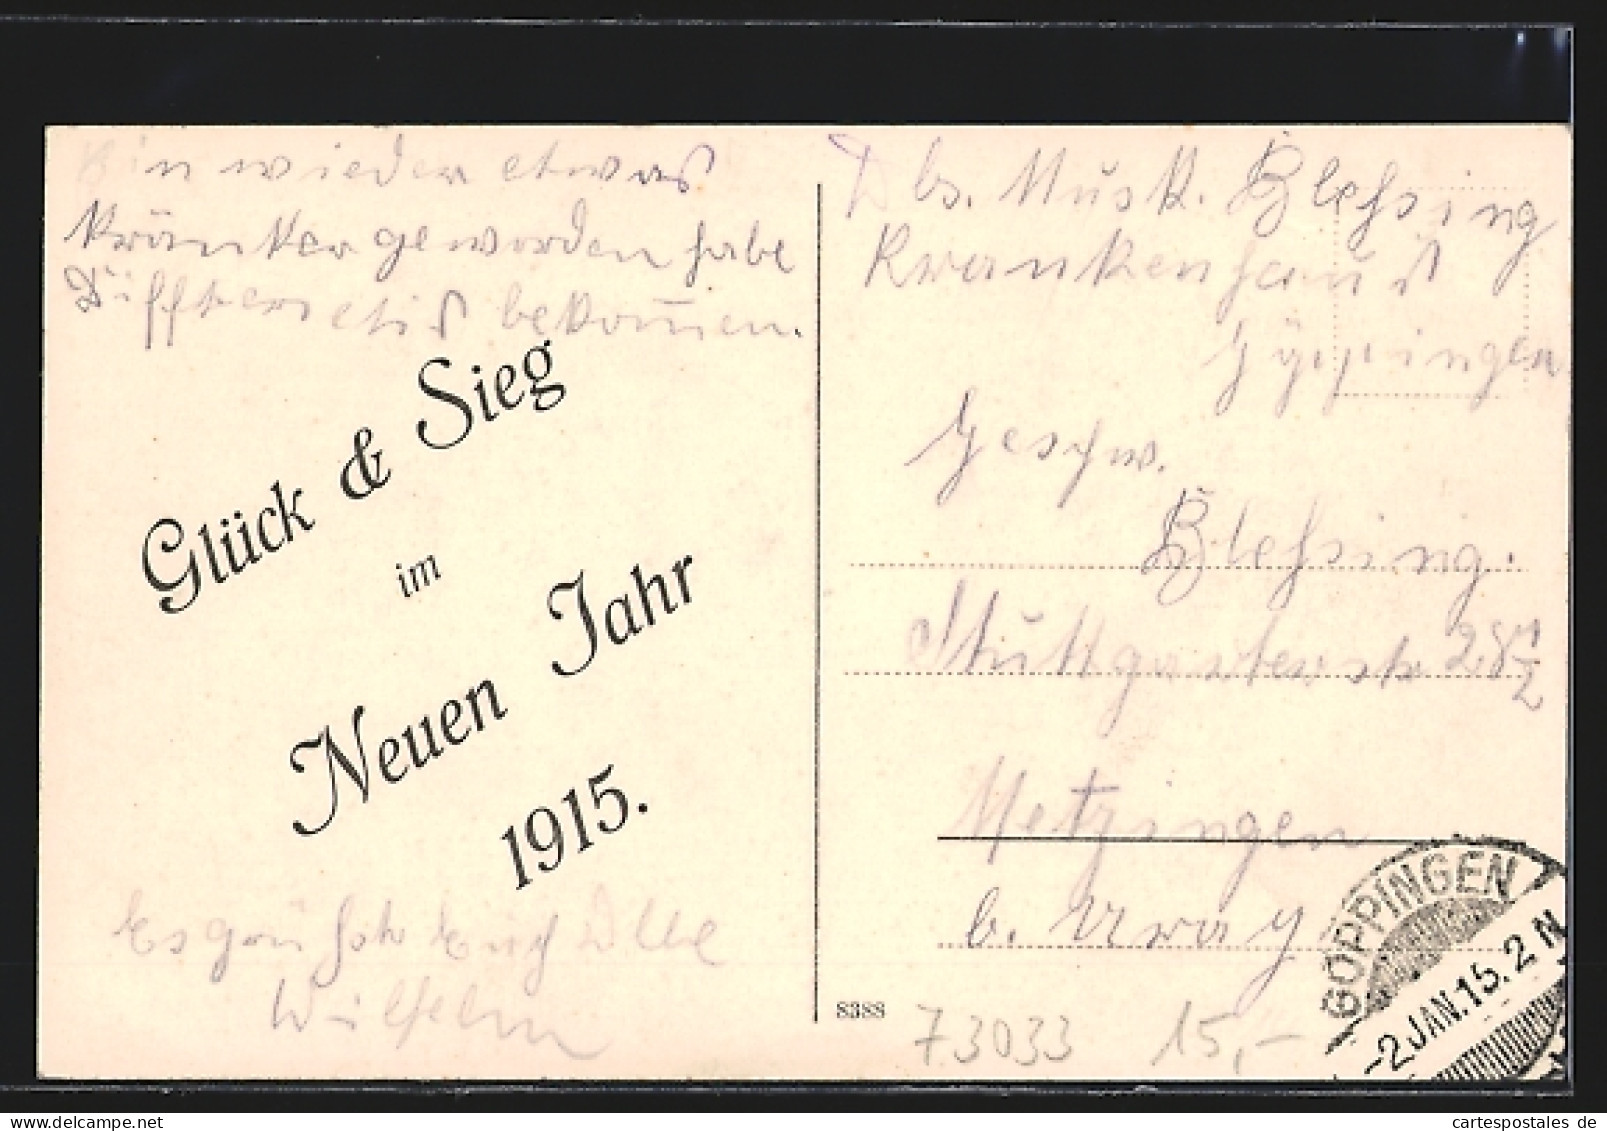 Bin wieder etwas
kränker geworden habe
Diffteritis bekommen.
Glück & Sieg
im
Neuen Jahr
1915.
Es grüßt Euch Alle
Wilhelm
Abs. Musk. Blessing
Krankenhaus
Göppingen
Geschw.
Blessing.
Stuttgarterstr 28 1/2
Metzingen
b. Urach
8388
73033 15,-
GÖPPINGEN
-2 JAN.15.2 N
cartespostales de